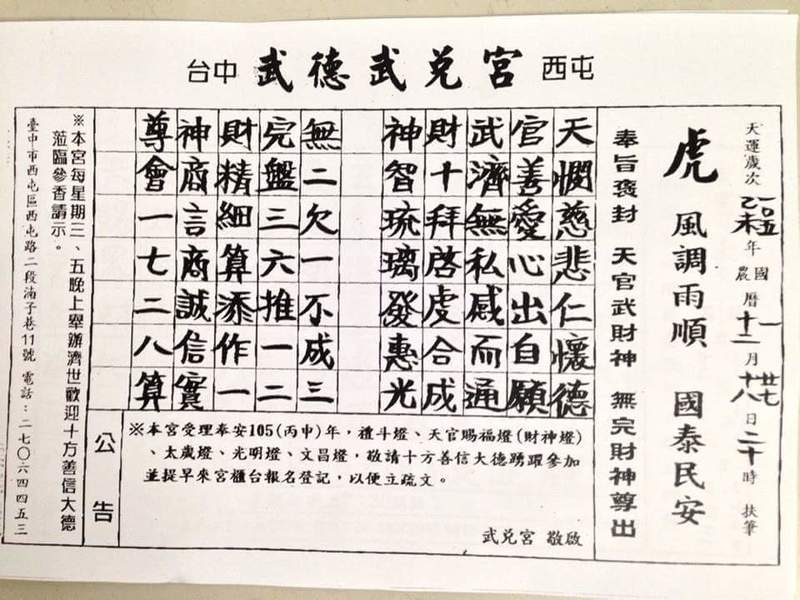 台中 武德武兌宮 西屯
天運歲次 一〇五 乙未 年 國農曆 一 十二 月 廿七 十八 日 二十 時 扶筆
虎 風調雨順 國泰民安
奉旨褒封 天官武財神 無完財神尊出
天憫慈悲仁懷德
官善愛心出自願
武濟無私感而通
財十拜啓虔合成
神智琉璃發惠光
無二欠一不成三
完盤三六推一二
財精細算添作一
神商言商誠信實
尊會一七二八算
公告
※本宮受理奉安105(丙申)年，禮斗燈、天官賜福燈(財神燈)
、太歲燈、光明燈、文昌燈，敬請十方善信大德踴躍參加
並提早來宮櫃台報名登記，以便立疏文。
武兌宮 敬啟
※本宮每星期三、五晚上舉辦濟世歡迎十方善信大德
蒞臨參香請示。
臺中市西屯區西屯路二段湳子巷11號 電話：二七〇六四四五三